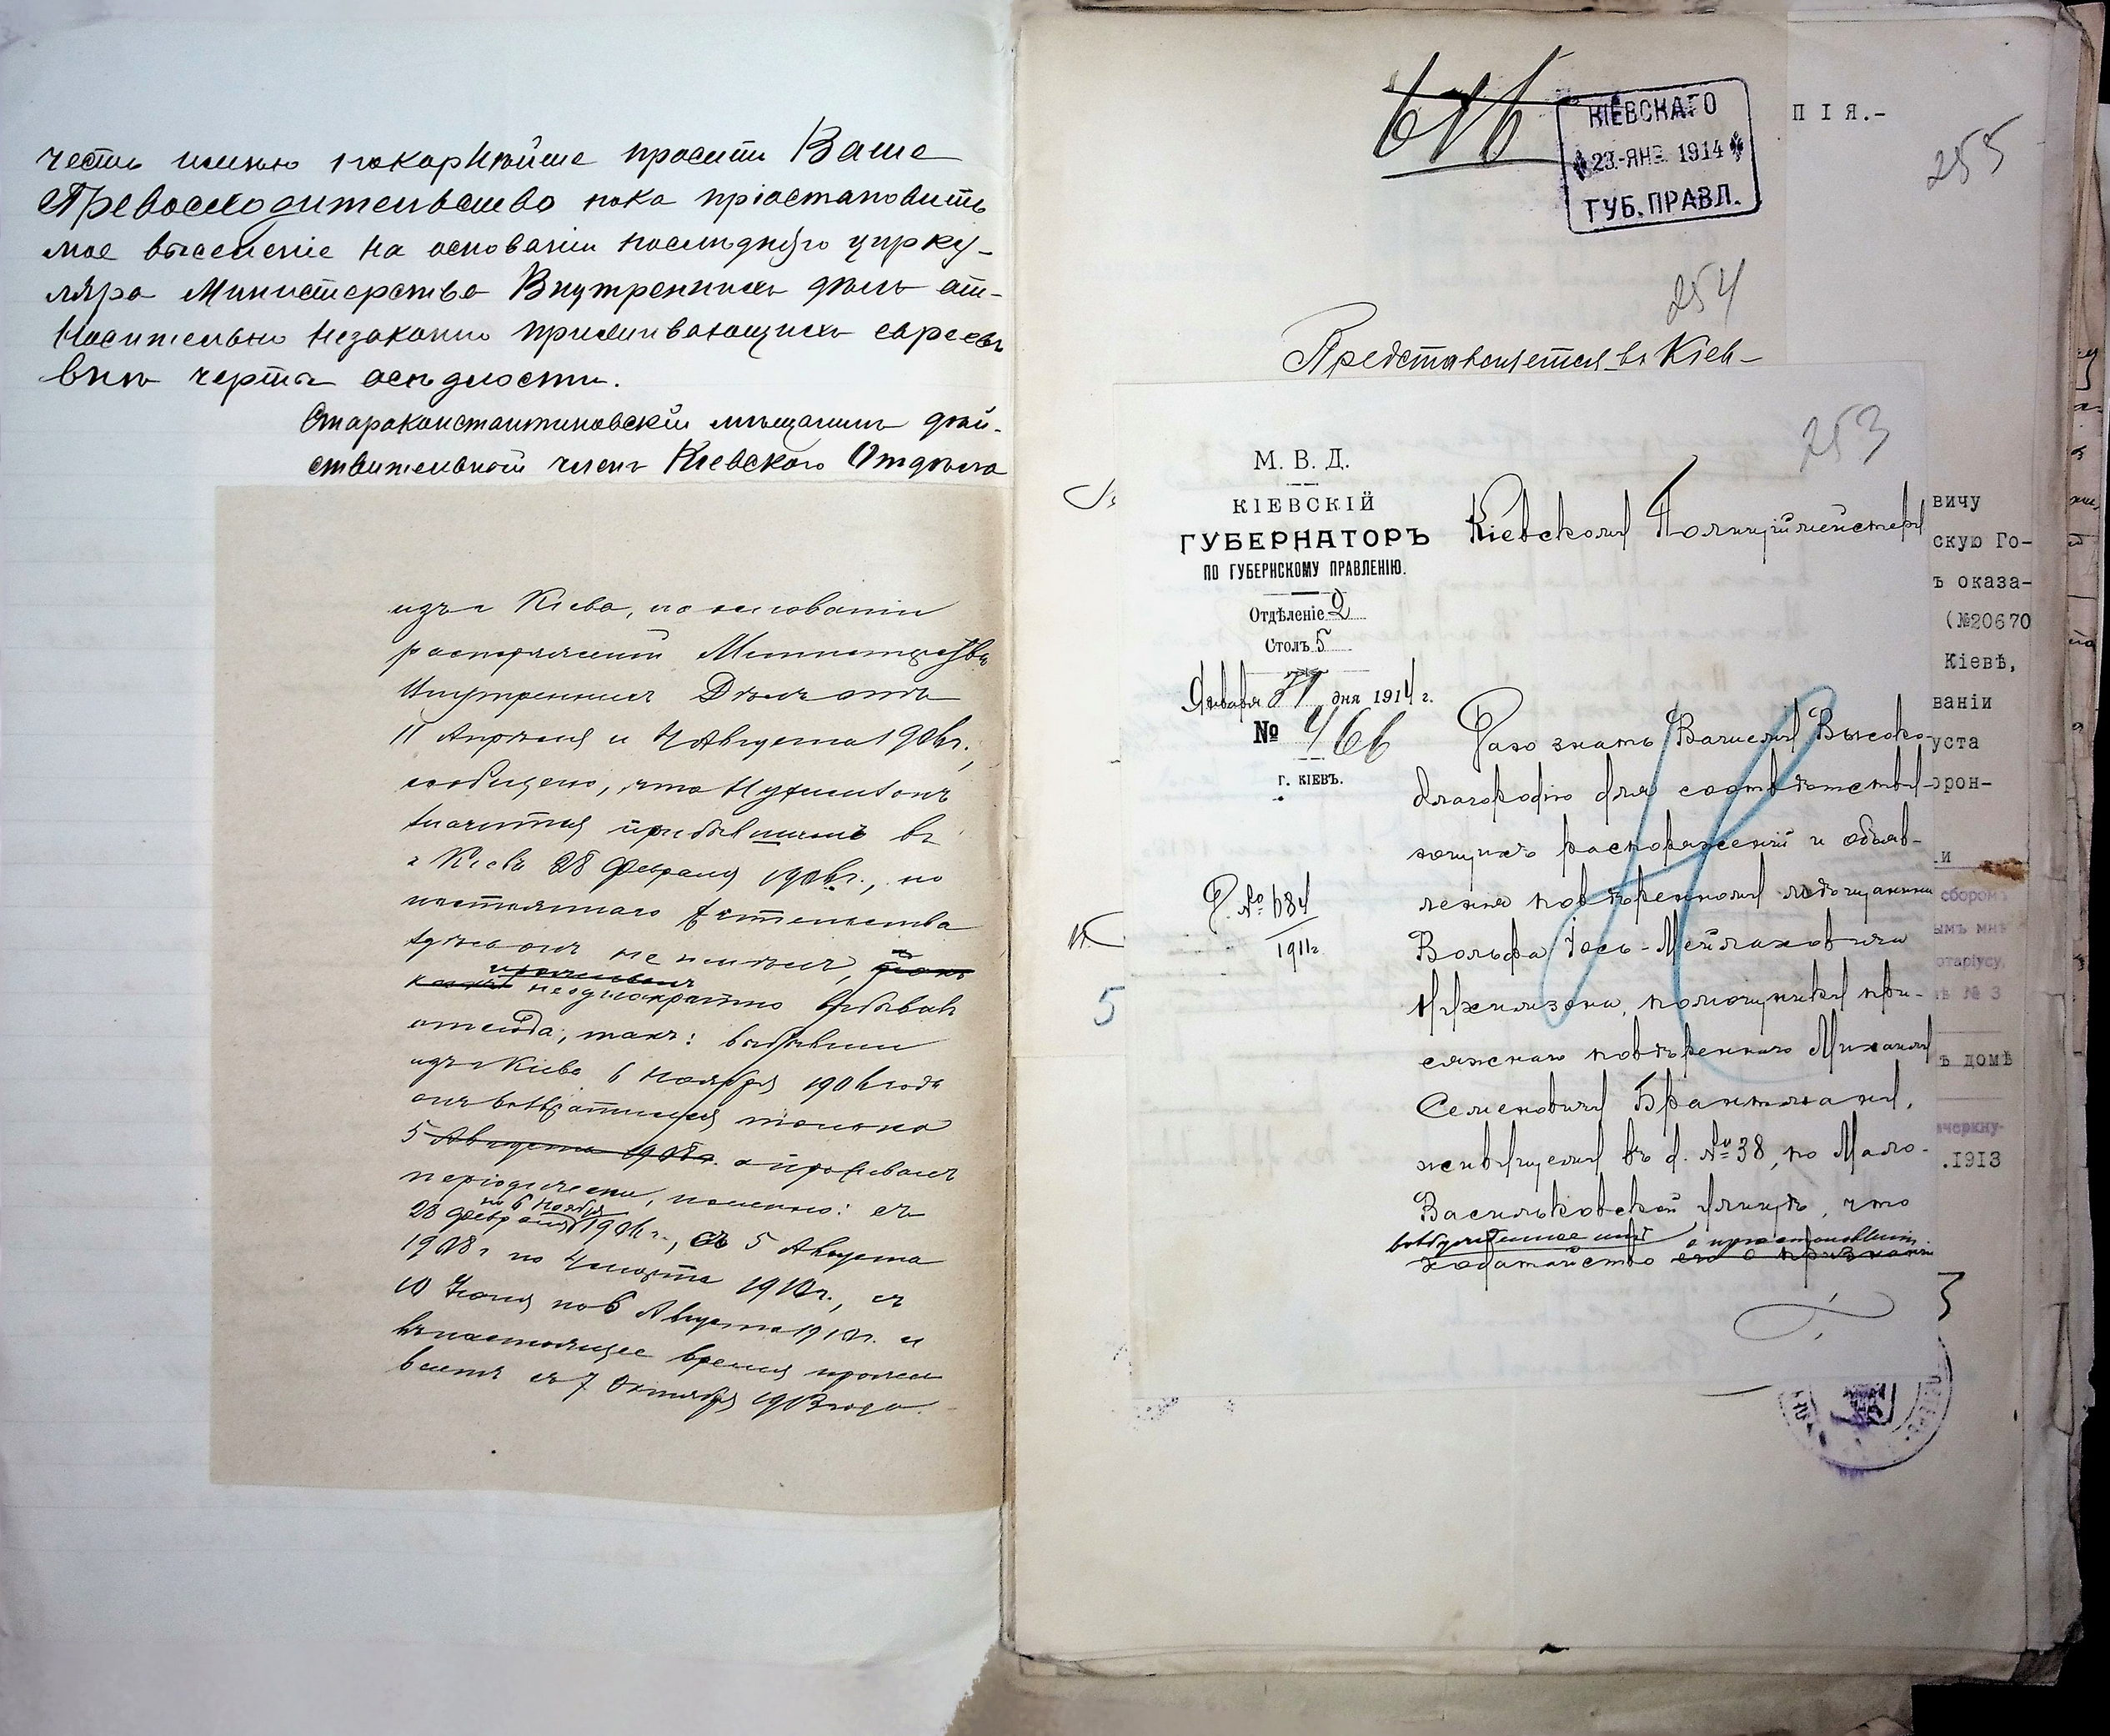 честь имѣю покорнѣйше просить Ваше
Превосходительство пока пріостановить
мое выселеніе на основаніи послѣдняго цирку-
ляра Министерства Внутреннихъ дѣлъ от-
носительно незаконно проживающихъ евреевъ
внѣ черты осѣдлости.
Староконстантиновскій мѣщанинъ дѣй-
ствительный членъ Кіевскаго Отдѣла
изъ г Кіева, на основаніи
распоряженій Министерства
Внутреннихъ Дѣлъ отъ
11 Апрѣля и Августа 1906 г.,
сообщено, что
значится прибывшимъ въ
г Кіевъ 28 Февраля 1906 г., но
постояннаго жительства
здѣсь онъ не имѣлъ,
неоднократно выбывалъ
отсюда, такъ: выбывши
изъ г Кіева 6 Ноября 1906 года
онъ возвратился только
5 Августа 1908 г. а проживалъ
періодически, именно: съ
28 Февраля по 6 Ноября 1906 г., съ 5 Августа
1908 г по 4 марта 1910 г., съ
10 Іюня по 6 Августа 1910 г. и
въ настоящее время прожи
ваетъ съ 7 Октября 1913 года.
КІЕВСКАГО
23.-ЯНВ. 1914
ГУБ. ПРАВЛ.
ПІЯ.-
255
254
Представляется въ Кіев-
253
М. В. Д.
КІЕВСКІЙ
ГУБЕРНАТОРЪ
ПО ГУБЕРНСКОМУ ПРАВЛЕНІЮ.
Отдѣленіе 2
Столъ 5
Января 21 дня 1914 г.
№ 466
г. КІЕВЪ.
Р. № 684
1911 г
5
Кіевскому Полиціймейстеру
Даю знать Вашему Высоко-
благородію для соотвѣтству-
ющихъ распоряженій и объяв-
ленія повѣренному мѣщанина
Вольфа Іось-Мейлаховича
помощнику при-
сяжнаго повѣреннаго Михаилу
Семеновичу Брантману,
живущему въ д. № 38, по Мало-
Васильковской улицѣ, что
возбужденное имъ о пріостановленіи
ходатайство его о признаніи
вичу
скую Го-
ъ оказа-
(№20670
Кіевѣ,
ваніи
уста
орон-
и
сборомъ
ымъ мнѣ
отаріусу,
№ 3
ъ домѣ
ачеркну-
.1913